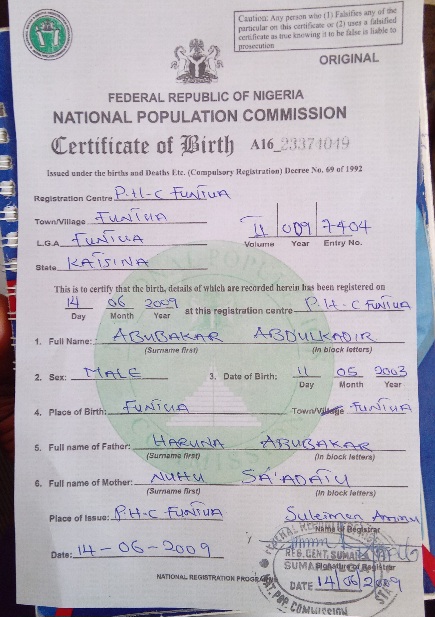 Caution: Any person who (1) Falsifies any of the
particular on this certificate or (2) uses a falsified
certificate as true knowing it to be false is liable to
prosecution
ORIGINAL
FEDERAL REPUBLIC OF NIGERIA
NATIONAL POPULATION COMMISSION
Certificate of Birth A16_23374049
Issued under the births and Deaths Etc. (Compulsory Registration) Decree No. 69 of 1992
Registration Centre P.H-C FUNTUA
Town/Village FUNTUA
L.G.A FUNTUA
II 009 7404
Volume Year Entry No.
State KATSINA
This is to certify that the birth, details of which are recorded herein has been registered on
14 06 2009 at this registration centre P.H-C FUNTUA
Day Month Year
1. Full Name: ABUBAKAR ABDULKADIR
(Surname first) (In block letters)
2. Sex: MALE 3. Date of Birth: 11 05 2003
Day Month Year
4. Place of Birth: FUNTUA Town/Village FUNTUA
5. Full name of Father: HARUNA ABUBAKAR
(Surname first) (In block letters)
6. Full name of Mother: NUHU SA'ADATU
(Surname first) (In block letters)
Place of Issue: P.H-C FUNTUA Suleiman Aminu
Name of Registrar
REG. CENT.
Signature of Registrar
Date: 14-06-2009
DATE 14/06/2009
NATIONAL REGISTRATION
POP. COMMISSION